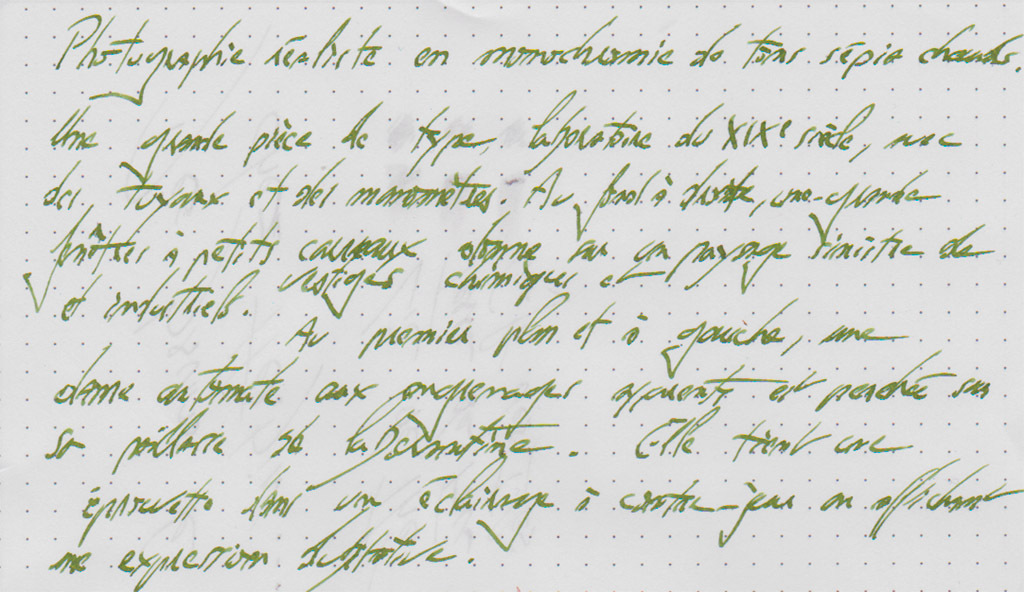 Photographie réaliste en monochromie de tons sépia chauds.
Une grande pièce de type laboratoire du XIXe siècle, avec
des tuyaux et des manomètres. Au fond à droite, une grande
fenêtre à petits carreaux donne sur un paysage sinistre de
vestiges chimiques et
et industriels.
Au premier plan et à gauche, une
dame automate aux engrenages apparents est penchée sur
sa paillasse de laborantine. Elle tient une
éprouvette dans un éclairage à contre-jour en affichant
une expression dubitative.